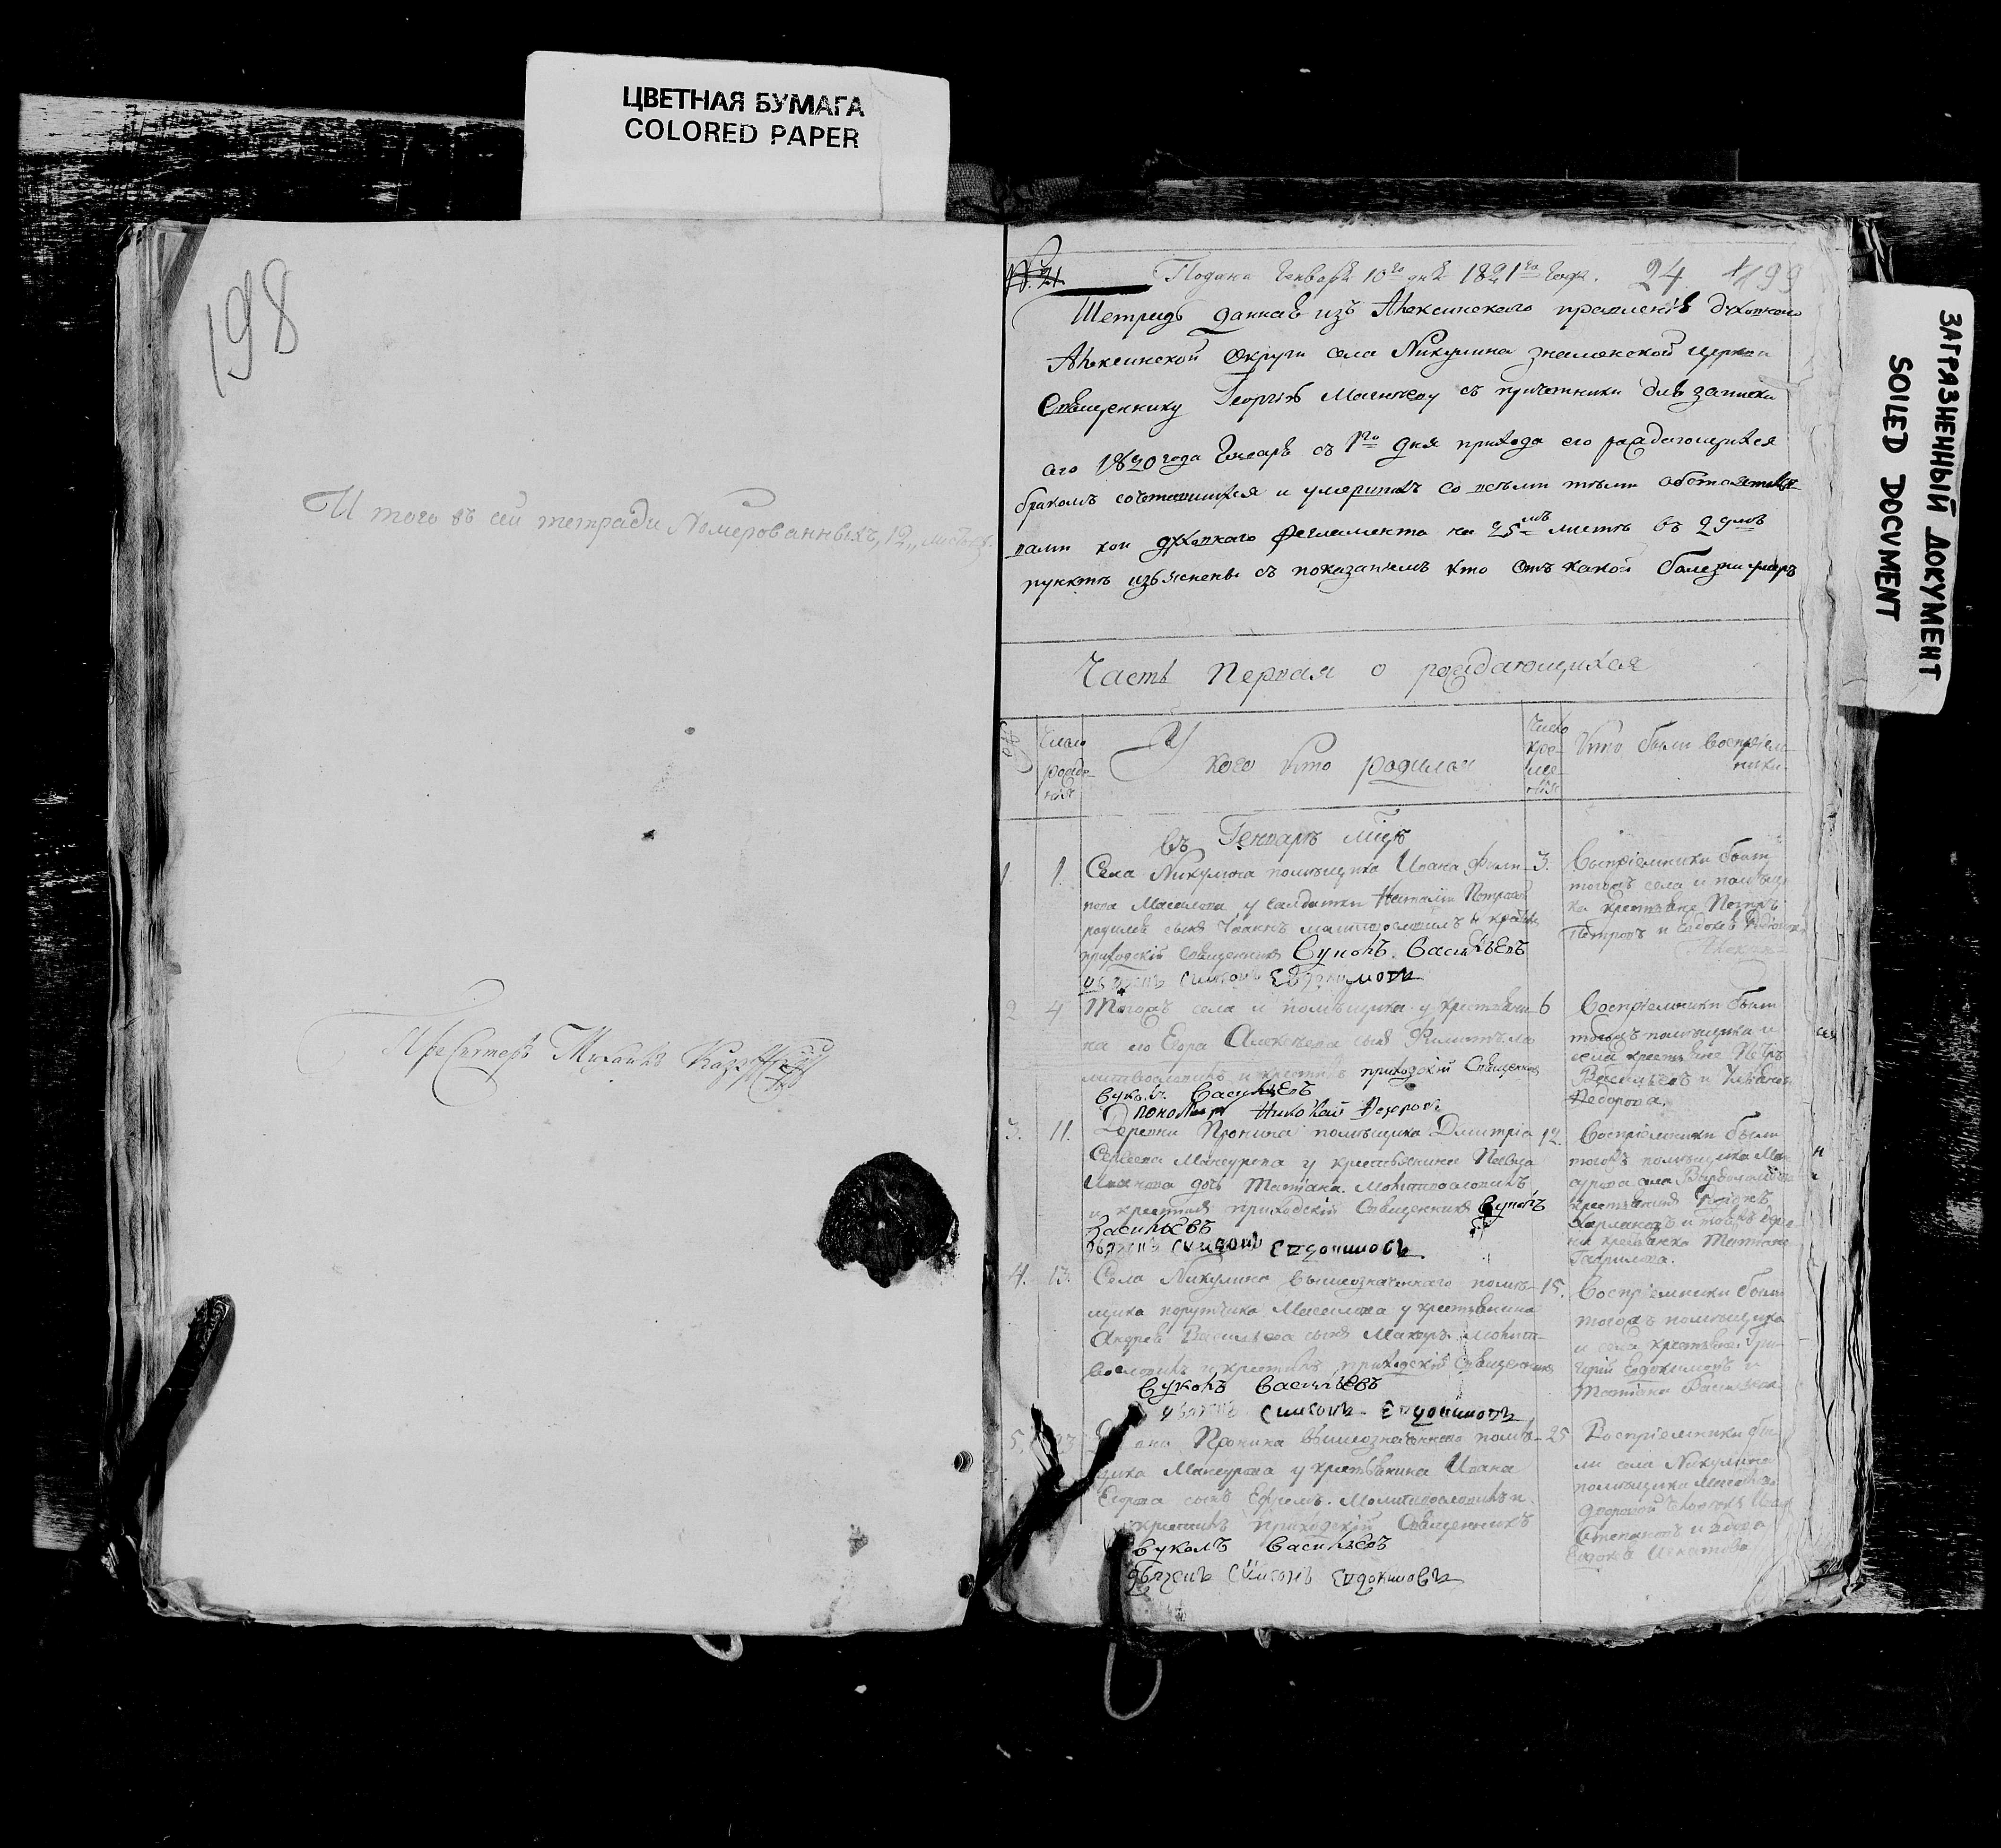 ЦВЕТНАЯ БУМАГА
COLORED PAPER
ЗАГРЯЗНЕННЫЙ ДОКУМЕНТ
SOILED DOCUMENT
198
И того въ сей тетради Номерованныхъ, 12,, листовъ.
Михаилъ
№. 21.
Подана Генваря 10го дня 1821го года. 24 199
Тетрадь данная изъ Алексинского правления духовного
Алексинской округи села Никулина знаменской церкви
Священнику Георгию Матвееву съ причетники для записки
сего 1820 года Генваря съ 1го дня прихода его раждающихся
бракомъ сочетавшихся и умершихъ со всеми теми обстоятельст
вами кои духовнаго Регламента на 25мъ листе въ 29мъ
пункте изъяснены съ показаниемъ кто отъ какой болезни умеръ
Часть Первая о раждающихся
Число
рожде-
ния
У кого кто родился
Число
кре-
ще-
ния
Кто были восприем-
ники.
въ Генваре мце
1. 1. Села Никулина помещика Ивана Филип 3.
пова Маслова у салдатки Наталии Петровой
родился сынъ Иоаннъ молитвословилъ и крестилъ
приходский священникъ Вуколъ Васильевъ
дьячекъ Симеонъ Евдокимовъ
Восприемники были
тогожъ села и помещи
ка крестьяне Петръ
Петровъ и Евдокия
2 4 Тогожъ села и помещика у крестьяни 6
на его Егора Алексеева сынъ
молитвословилъ и крестилъ приходский Священникъ
Вуколъ Васильевъ
пономарь Николай Федоровъ
Восприемники были
тогожъ помещика и
села крестьяне Петръ
Васильевъ и Ульяна
Федорова.
3. 11. Деревни Пронина помещика Димитрия 12.
Сергеева Мансурова у крестьянина
Иванова дочь Татиана. Молитвословилъ
и крестилъ приходский Священникъ Вуколъ
Васильевъ
дьячекъ Симеонъ Евдокимовъ
Восприемники были
тогожъ помещика Ман
сурова села
крестьянинъ
и тояжъ дерев
ни крестьянка Татиана
Гаврилова.
4. 13. Села Никулина вышеозначеннаго поме- 15.
щика порутчика Маслова у крестьянина
Андрея Васильева сынъ Макаръ. Молит-
вословилъ и крестилъ приходский Священникъ
Вуколъ Васильевъ
дьячекъ Симеонъ Евдокимовъ
Восприемники были
тогожъ помещика
и села крестьяне Гри-
горий Евдокимовъ и
Татиана Васильева
5. 23 Пронина вышеозначеннаго поме- 25
щика Мансурова у крестьянина Ивана
Егорова сынъ Ефремъ. Молитвословилъ и
крестилъ приходский Священникъ
Вуколъ Васильевъ
дьячекъ Симеонъ Евдокимовъ
Восприемники бы-
ли села Никулина
помещика Маслова
дворовой человекъ
Степановъ и
Игнатова